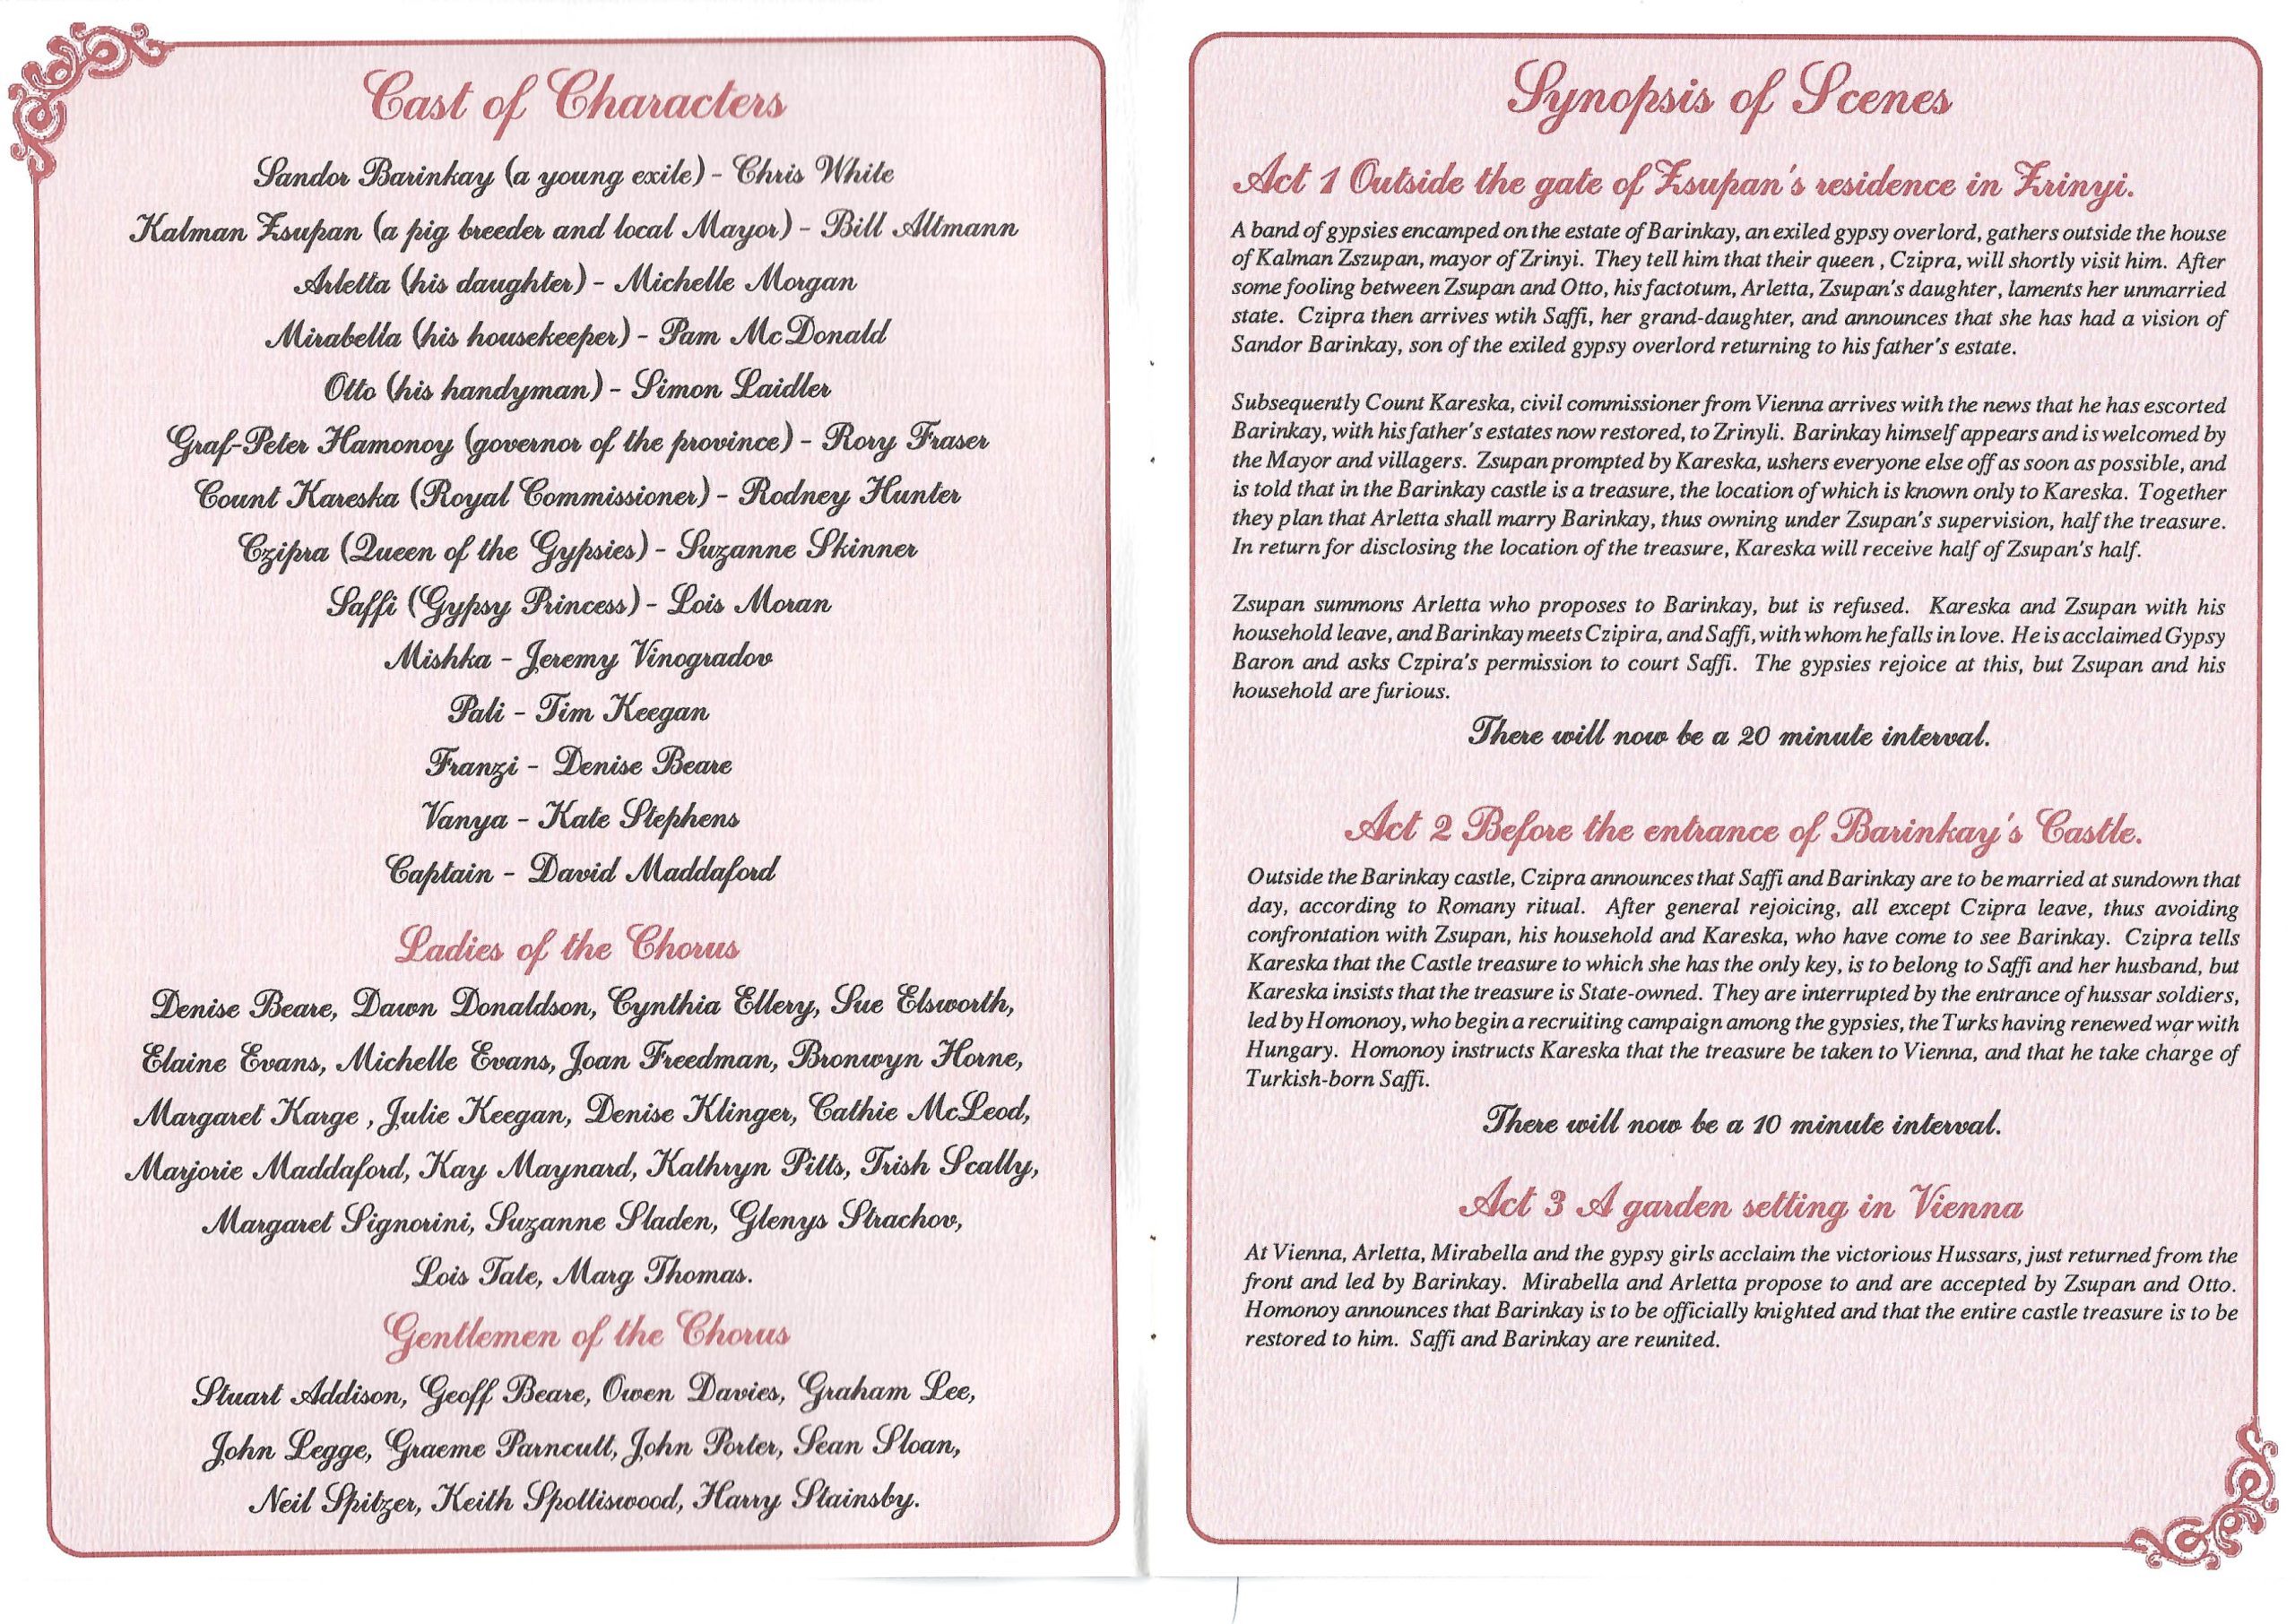 Cast of Characters
Sandor Barinkay (a young exile) - Chris White
Kalman Zsupan (a pig breeder and local Mayor) - Bill Altmann
Arletta (his daughter) - Michelle Morgan
Mirabella (his housekeeper) - Pam McDonald
Otto (his handyman) - Simon Laidler
Graf-Peter Hamonoy (governor of the province) - Rory Fraser
Count Kareska (Royal Commissioner) - Rodney Hunter
Czipra (Queen of the Gypsies) - Suzanne Skinner
Saffi (Gypsy Princess) - Lois Moran
Mishka - Jeremy Vinogradov
Pali - Tim Keegan
Franzi - Denise Beare
Vanya - Kate Stephens
Captain - David Maddaford
Ladies of the Chorus
Denise Beare, Dawn Donaldson, Cynthia Ellery, Sue Elsworth,
Elaine Evans, Michelle Evans, Joan Freedman, Bronwyn Horne,
Margaret Karge , Julie Keegan, Denise Klinger, Cathie McLeod,
Marjorie Maddaford, Kay Maynard, Kathryn Pitts, Trish Scally,
Margaret Signorini, Suzanne Sladen, Glenys Strachov,
Lois Tate, Marg Thomas.
Gentlemen of the Chorus
Stuart Addison, Geoff Beare, Owen Davies, Graham Lee,
John Legge, Graeme Parncutt, John Porter, Sean Sloan,
Neil Spitzer, Keith Spottiswood, Harry Stainsby.
Synopsis of Scenes
Act 1 Outside the gate of Zsupan's residence in Zrinyi.
A band of gypsies encamped on the estate of Barinkay, an exiled gypsy overlord, gathers outside the house
of Kalman Zszupan, mayor of Zrinyi. They tell him that their queen , Czipra, will shortly visit him. After
some fooling between Zsupan and Otto, his factotum, Arletta, Zsupan's daughter, laments her unmarried
state. Czipra then arrives wtih Saffi, her grand-daughter, and announces that she has had a vision of
Sandor Barinkay, son of the exiled gypsy overlord returning to his father's estate.
Subsequently Count Kareska, civil commissioner from Vienna arrives with the news that he has escorted
Barinkay, with his father's estates now restored, to Zrinyli. Barinkay himself appears and is welcomed by
the Mayor and villagers. Zsupan prompted by Kareska, ushers everyone else off as soon as possible, and
is told that in the Barinkay castle is a treasure, the location of which is known only to Kareska. Together
they plan that Arletta shall marry Barinkay, thus owning under Zsupan's supervision, half the treasure.
In return for disclosing the location of the treasure, Kareska will receive half of Zsupan's half.
Zsupan summons Arletta who proposes to Barinkay, but is refused. Kareska and Zsupan with his
household leave, and Barinkay meets Czipira, and Saffi, with whom he falls in love. He is acclaimed Gypsy
Baron and asks Czpira's permission to court Saffi. The gypsies rejoice at this, but Zsupan and his
household are furious.
There will now be a 20 minute interval.
Act 2 Before the entrance of Barinkay's Castle.
Outside the Barinkay castle, Czipra announces that Saffi and Barinkay are to be married at sundown that
day, according to Romany ritual. After general rejoicing, all except Czipra leave, thus avoiding
confrontation with Zsupan, his household and Kareska, who have come to see Barinkay. Czipra tells
Kareska that the Castle treasure to which she has the only key, is to belong to Saffi and her husband, but
Kareska insists that the treasure is State-owned. They are interrupted by the entrance of hussar soldiers,
led by Homonoy, who begin a recruiting campaign among the gypsies, the Turks having renewed war with
Hungary. Homonoy instructs Kareska that the treasure be taken to Vienna, and that he take charge of
Turkish-born Saffi.
There will now be a 10 minute interval.
Act 3 A garden setting in Vienna
At Vienna, Arletta, Mirabella and the gypsy girls acclaim the victorious Hussars, just returned from the
front and led by Barinkay. Mirabella and Arletta propose to and are accepted by Zsupan and Otto.
Homonoy announces that Barinkay is to be officially knighted and that the entire castle treasure is to be
restored to him. Saffi and Barinkay are reunited.